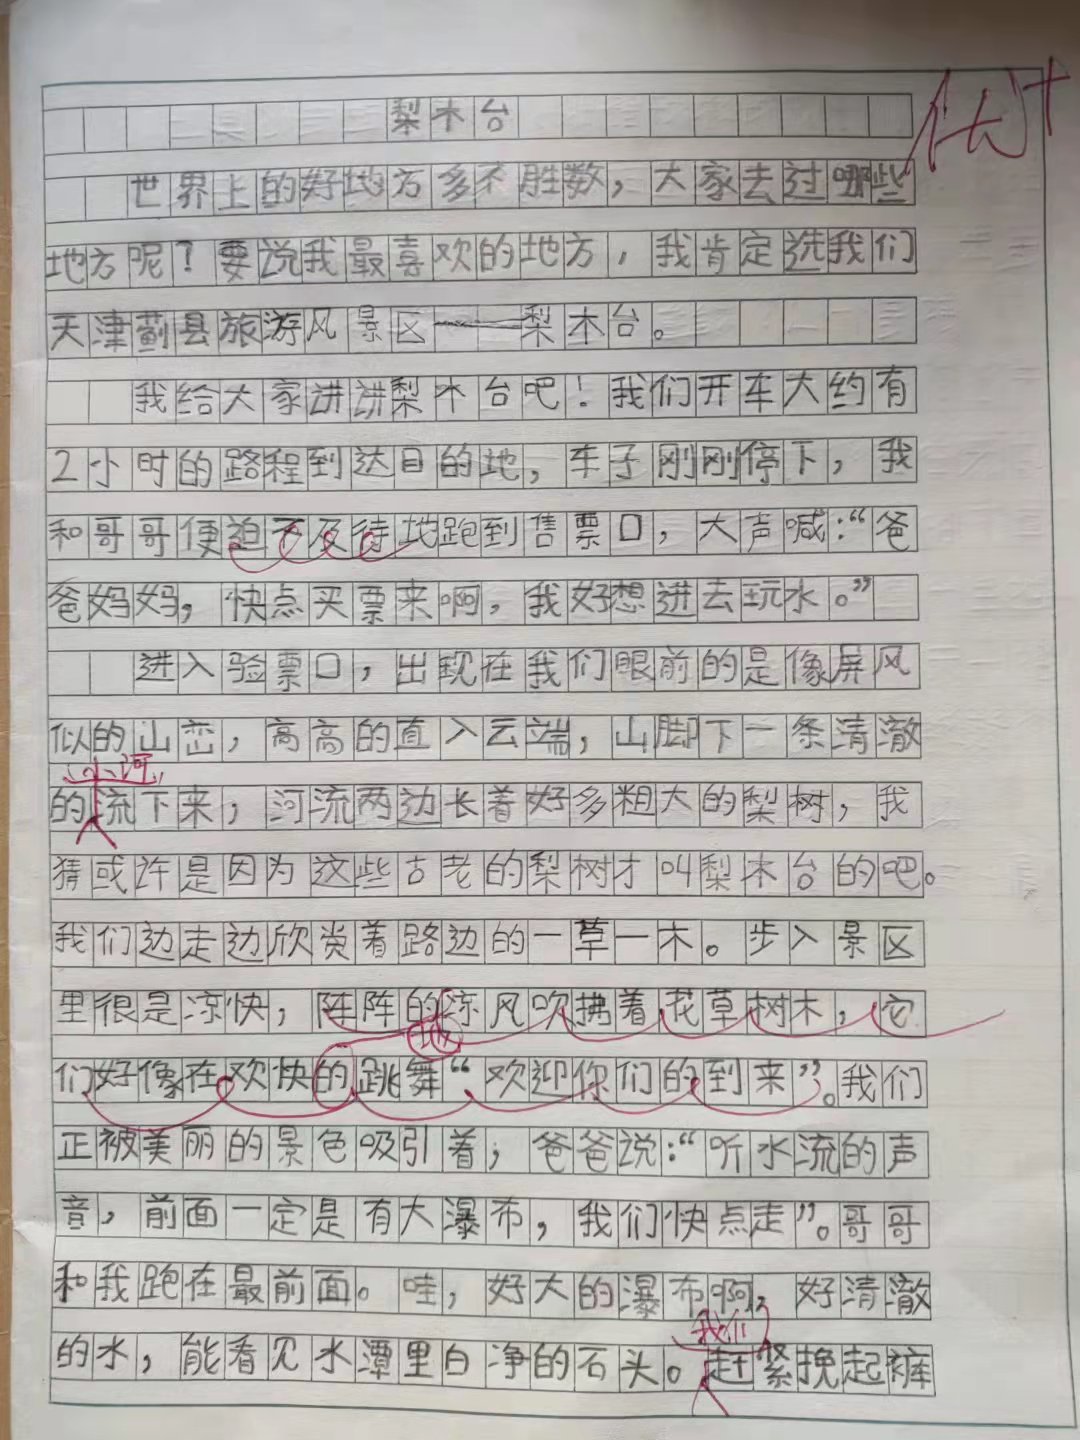 梨木台
优+
世界上的好地方多不胜数，大家去过哪些
地方呢？要说我最喜欢的地方，我肯定选我们
天津蓟县旅游风景区——梨木台。
我给大家讲讲梨木台吧！我们开车大约有
2小时的路程到达目的地，车子刚刚停下，我
和哥哥便迫不及待地跑到售票口，大声喊：“爸
爸妈妈，快点买票来啊，我好想进去玩水。”
进入验票口，出现在我们眼前的是像屏风
似的山峦，高高的直入云端，山脚下一条清澈
小河
的流下来，河流两边长着好多粗大的梨树，我
猜或许是因为这些古老的梨树才叫梨木台的吧。
我们边走边欣赏着路边的一草一木。步入景区
里很是凉快，阵阵的凉风吹拂着花草树木，它
地
们好像在欢快的跳舞“欢迎你们的到来”。我们
正被美丽的景色吸引着，爸爸说：“听水流的声
音，前面一定是有大瀑布，我们快点走”。哥哥
和我跑在最前面。哇，好大的瀑布啊，好清澈
我们
的水，能看见水潭里白净的石头。赶紧挽起裤